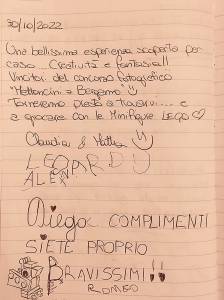 30/10/2022
Una bellissima esperienza scoperta per
caso. Creatività e fantasia!!
Vincitori del concorso fotografico
"Mettoncini a Bergamo"
Torneremo presto a trovarvi... e
a giocare con le Minifigure LEGO
Claudia & Mattia
LEONARDO
ALEX
Diego COMPLIMENTI
SIETE PROPRIO
BRAVISSIMI!!
ROMEO